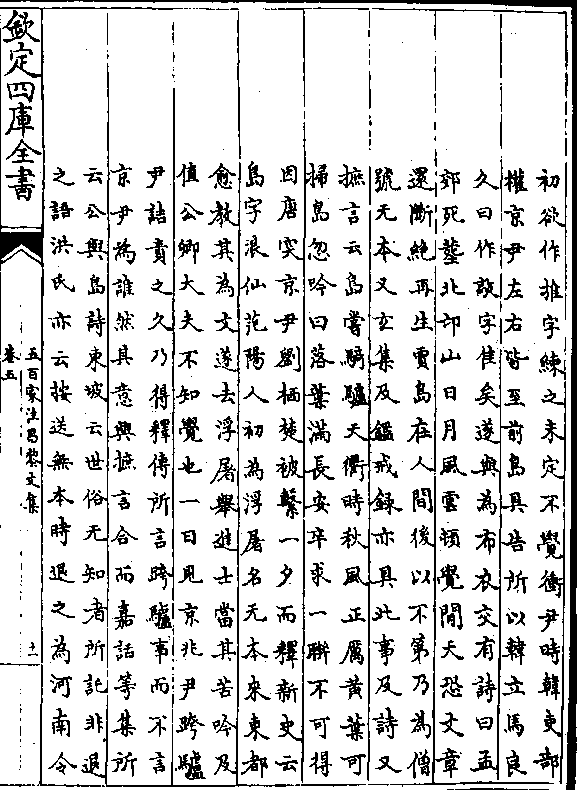 初欲作推字練之未定不覺衝尹時韓吏部
權京尹左右皆至前島具告所以韓立馬良
久曰作敲字佳矣遂與為布衣交有詩曰孟
郊死𦵏北邙山日月風雲頓覺閒天恐文章
還斷絶再生賈島在人間後以不第乃為僧
號无本又玄集及鑑戒録亦具此事及詩又
摭言云島嘗騎驢天衢時秋風正厲黄葉可
掃島忽吟曰落葉滿長安卒求一聯不可得
因唐突京尹劉栖楚被繫一夕而釋新史云
島字浪仙范陽人初為浮屠名无本來東都
愈教其為文遂去浮屠舉進士當其苦吟及
值公卿大夫不知覺也一日見京兆尹跨驢
尹詰責之久乃得釋傳所言跨驢事而不言
京尹為誰然其意與摭言合而嘉話等集所
云公與島詩東坡云世俗无知者所託非退
之語洪氏亦云按送無本時退之為河南令
欽定四庫全書
五百家注昌黎文集
卷五
十一